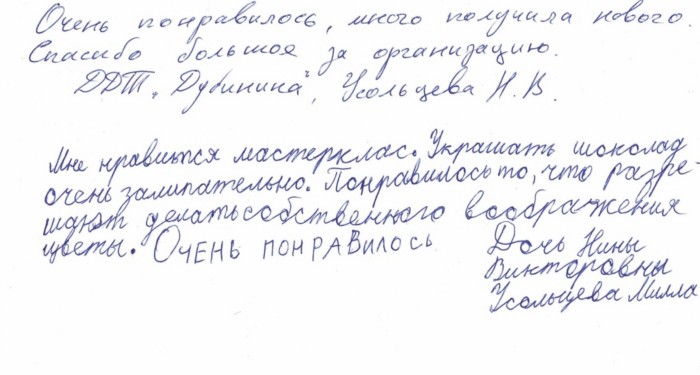 Очень понравилось, много получила нового.
Спасибо большое за организацию.
ДДТ "Дубинина", Усольцева Н.В.
Мне нравится мастерклас. Украшать шоколад
очень залипательно. Понравилось то, что разре-
шают делать собственного воображения
цветы. ОЧЕНЬ ПОНРАВИЛОСЬ
Дочь Нины
Викторовны
Усольцева Милла